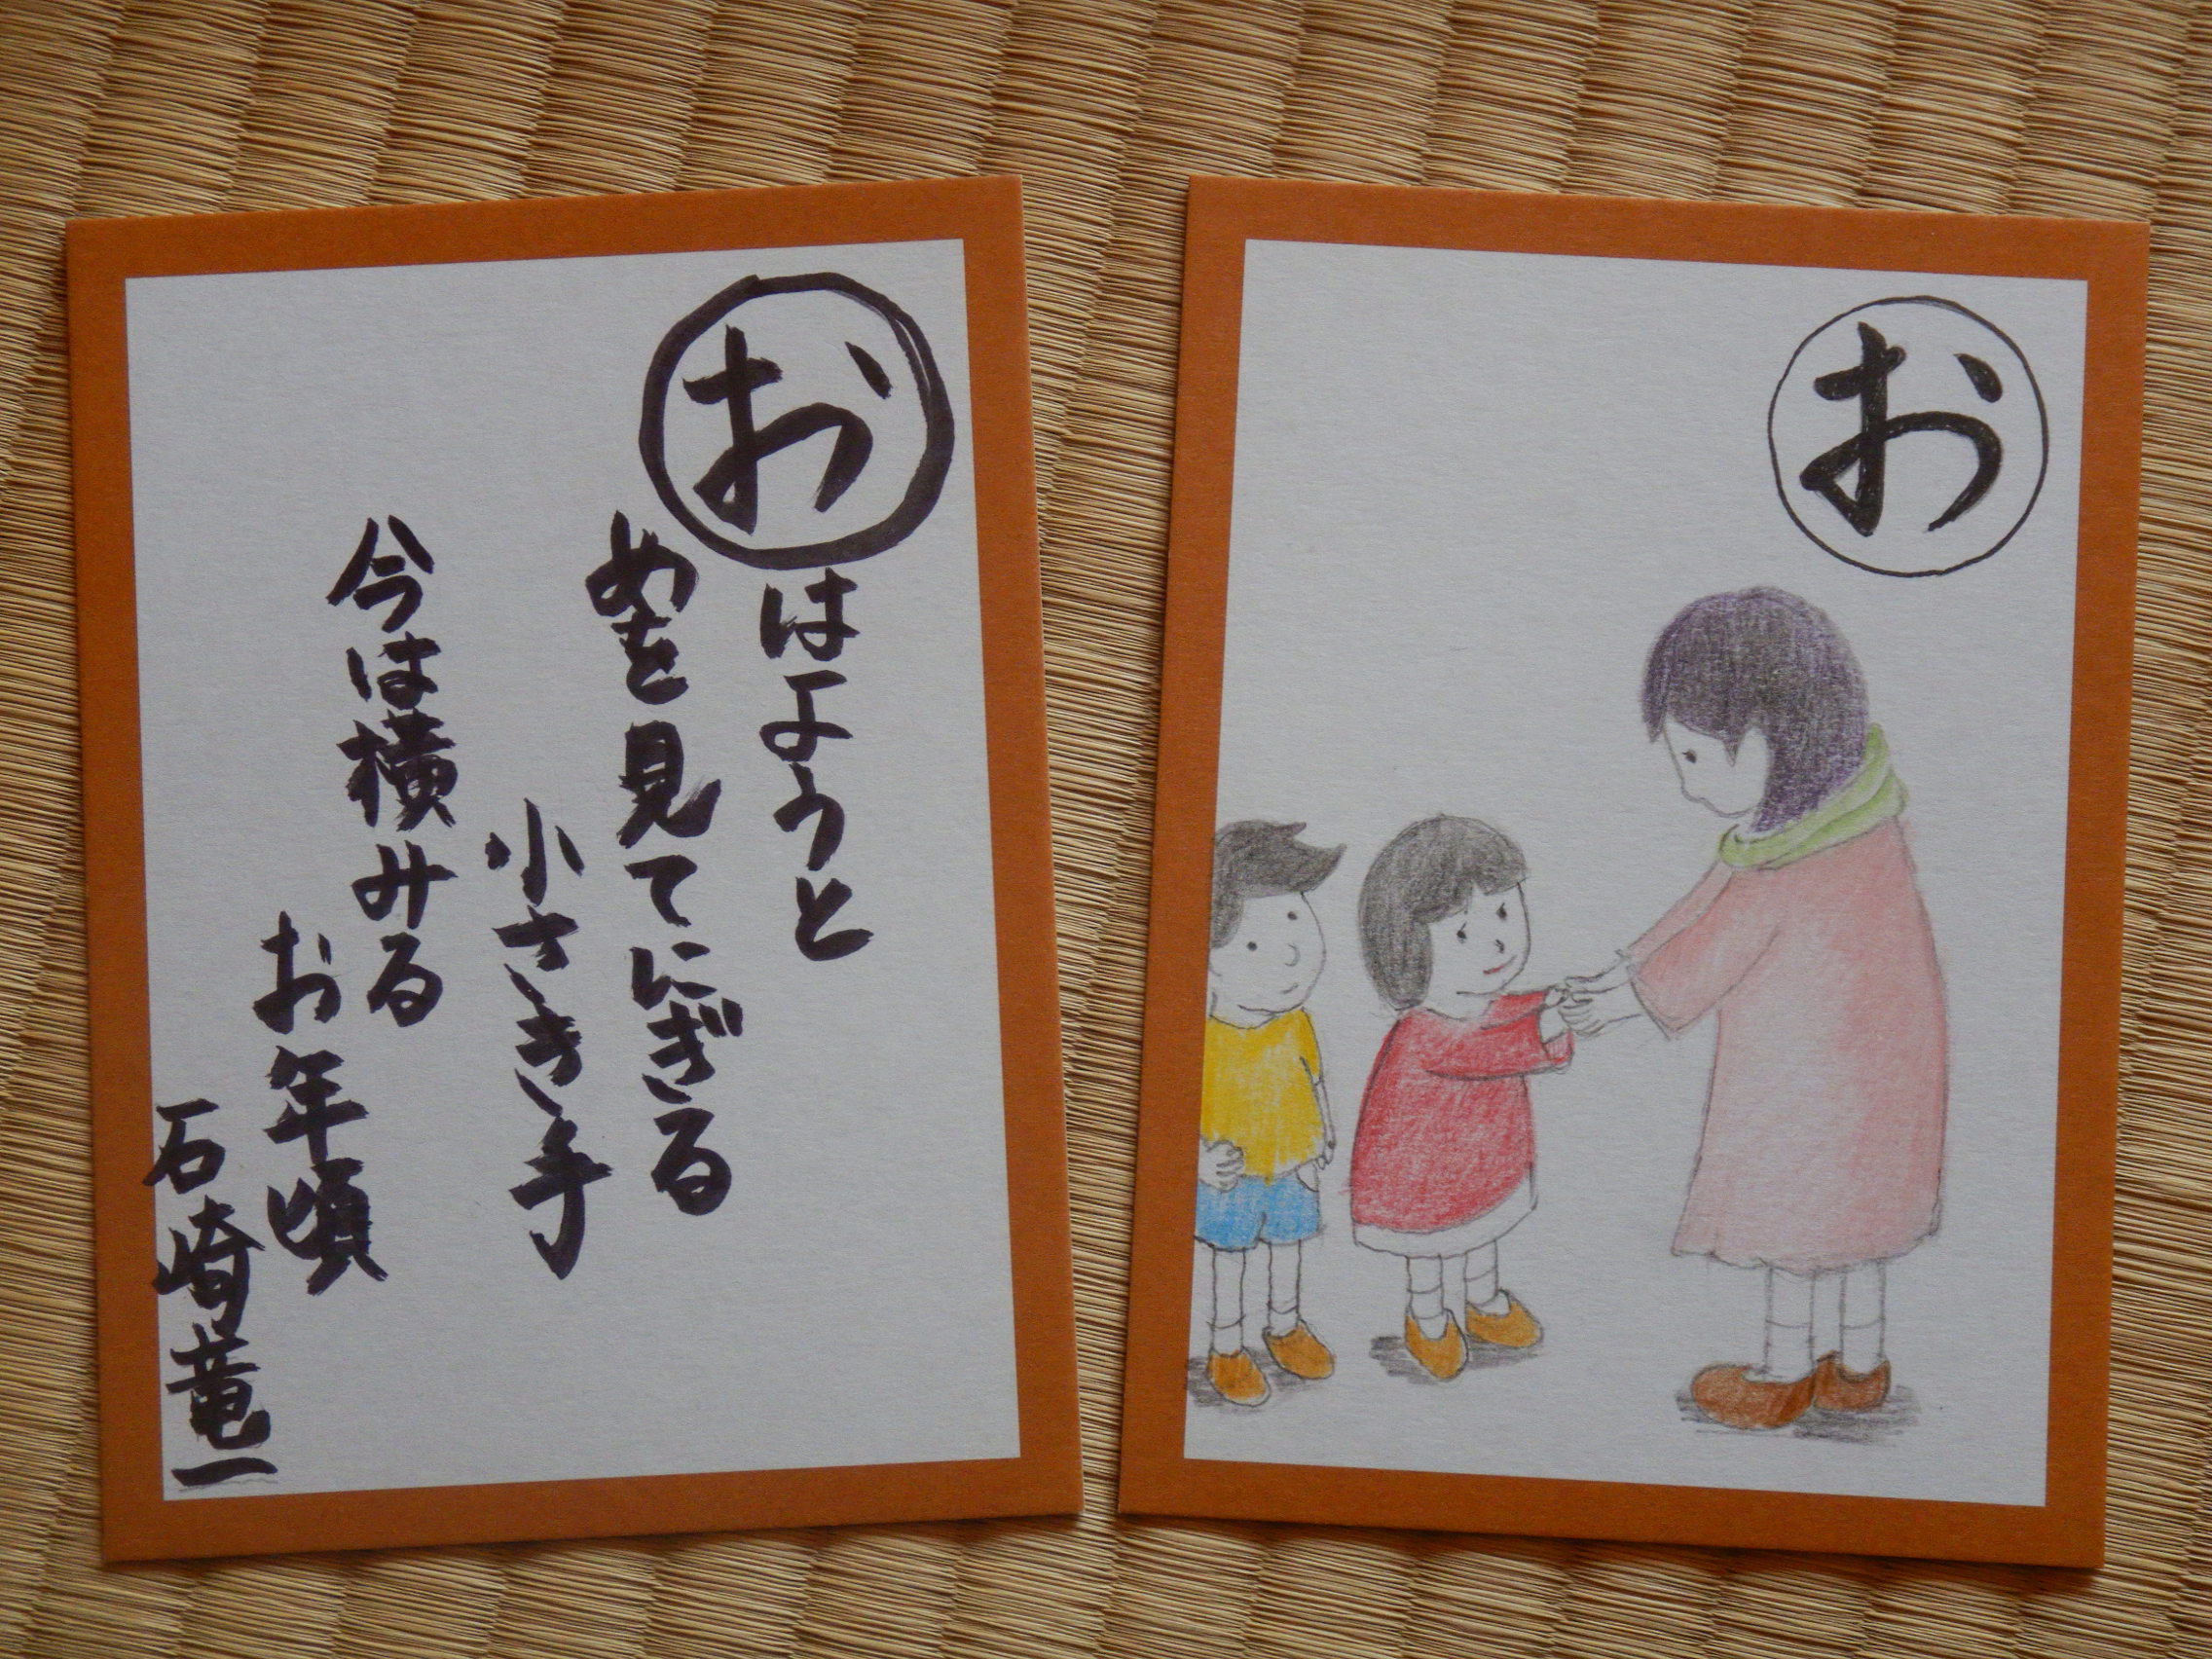 おはようと
めを見てにぎる
小さき手
今は横みる
お年頃
石崎竜一
お